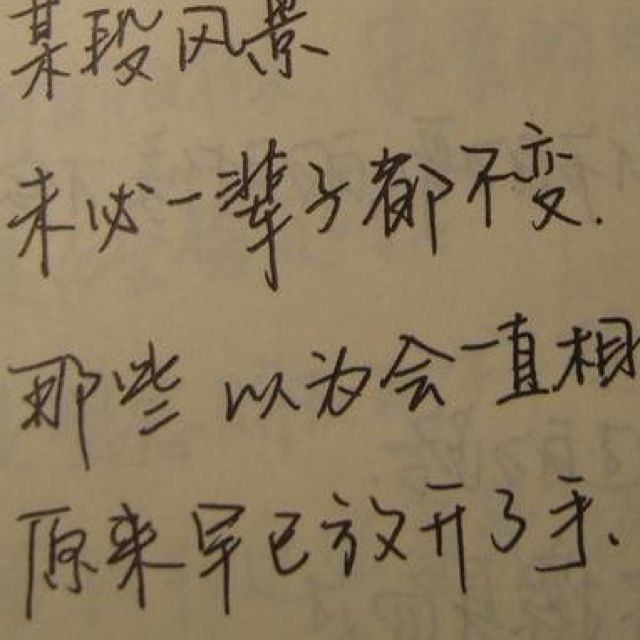 某段风景
未必一辈子都不变.
那些 以为会一直相
原来早已放开了手.